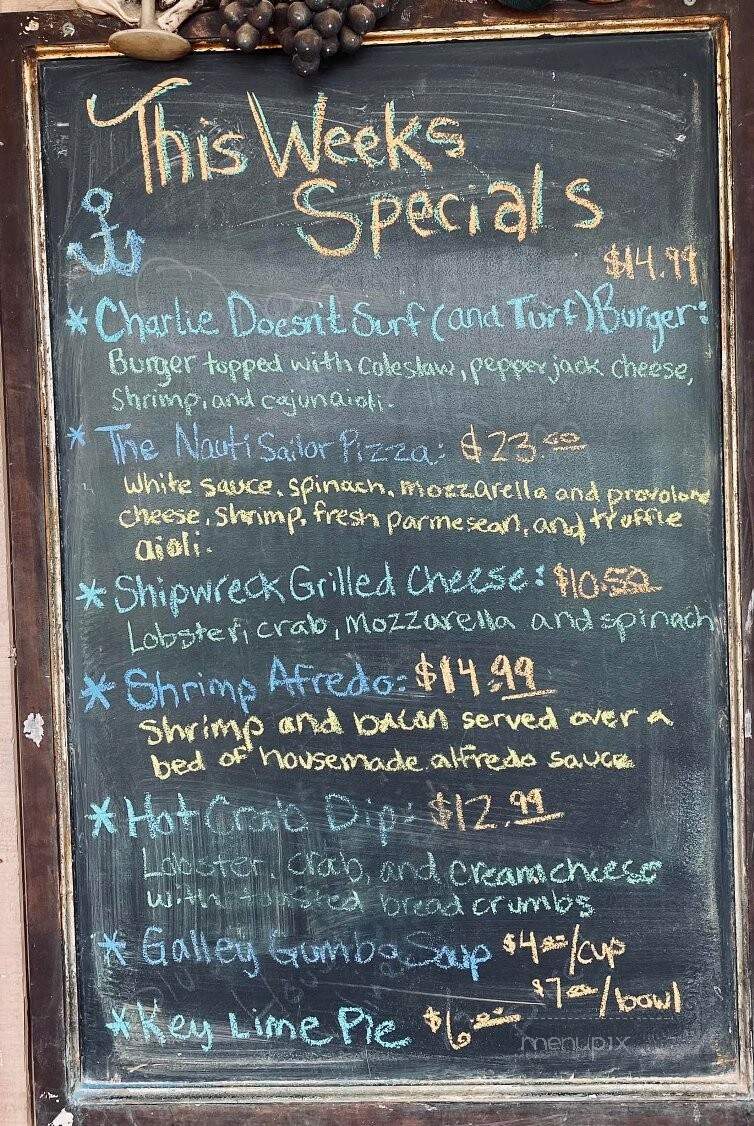 This Weeks
Specials
$14.99
* Charlie Doesn't Surf (and Turf) Burger:
Burger topped with coleslaw, pepperjack cheese,
Shrimp, and cajun aioli.
* The Nauti Sailor Pizza: $23.00
White sauce, spinach, mozzarella and provolone
cheese, shrimp, fresh parmesean, and truffle
aioli.
* Shipwreck Grilled Cheese: $10.50
Lobster, crab, mozzarella and spinach
* Shrimp Afredo: $14.99
Shrimp and bacon served over a
bed of housemade alfredo sauce
* Hot Crab Dip: $12.99
Lobster, crab, and cream cheese
with toasted bread crumbs
* Galley Gumbo Soup $4.00/cup
$7.00/bowl
* Key Lime Pie $6.00
menupix